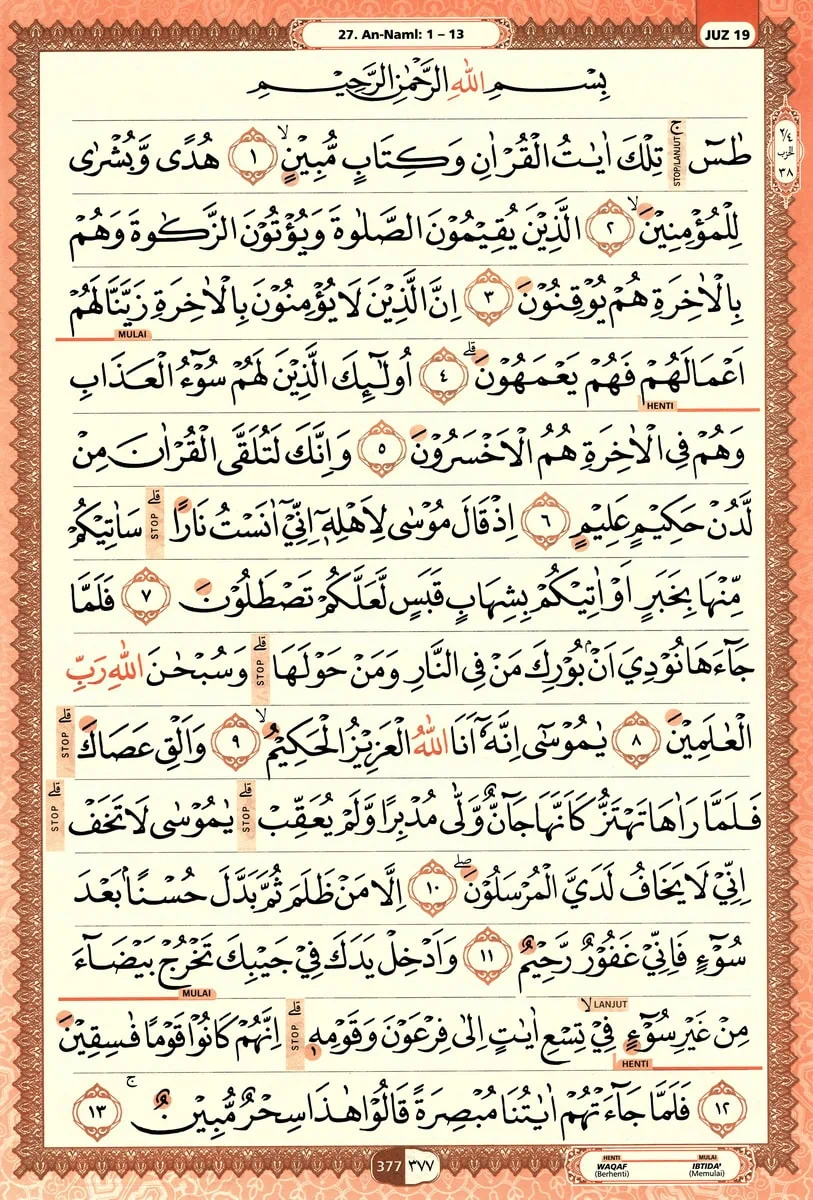 27. An-Naml: 1 – 13
JUZ 19
بِسْــــمِ اللّٰهِ الرَّحْمٰنِ الرَّحِيْـــمِ
طٰسۤ ۚ STOP/LANJUT تِلْكَ اٰيٰتُ الْقُرْاٰنِ وَكِتَابٍ مُّبِيْنٍۙ ١ هُدًى وَّبُشْرٰى
٢/٤
الحزب
٣٨
لِلْمُؤْمِنِيْنَۙ ٢ الَّذِيْنَ يُقِيْمُوْنَ الصَّلٰوةَ وَيُؤْتُوْنَ الزَّكٰوةَ وَهُمْ
بِالْاٰخِرَةِ هُمْ يُوْقِنُوْنَ ٣ اِنَّ الَّذِيْنَ لَا يُؤْمِنُوْنَ بِالْاٰخِرَةِ زَيَّنَّا لَهُمْ
MULAI
اَعْمَالَهُمْ فَهُمْ يَعْمَهُوْنَۗ ٤ اُولٰۤىِٕكَ الَّذِيْنَ لَهُمْ سُوْۤءُ الْعَذَابِ
HENTI
وَهُمْ فِى الْاٰخِرَةِ هُمُ الْاَخْسَرُوْنَ ٥ وَاِنَّكَ لَتُلَقَّى الْقُرْاٰنَ مِنْ
لَّدُنْ حَكِيْمٍ عَلِيْمٍ ٦ اِذْ قَالَ مُوْسٰى لِاَهْلِهٖٓ اِنِّيْٓ اٰنَسْتُ نَارًاۗ STOP سَاٰتِيْكُمْ
مِّنْهَا بِخَبَرٍ اَوْ اٰتِيْكُمْ بِشِهَابٍ قَبَسٍ لَّعَلَّكُمْ تَصْطَلُوْنَ ٧ فَلَمَّا
جَاۤءَهَا نُوْدِيَ اَنْۢ بُوْرِكَ مَنْ فِى النَّارِ وَمَنْ حَوْلَهَاۗ STOP وَسُبْحٰنَ اللّٰهِ رَبِّ
الْعٰلَمِيْنَ ٨ يٰمُوْسٰٓى اِنَّهٗٓ اَنَا اللّٰهُ الْعَزِيْزُ الْحَكِيْمُۙ ٩ وَاَلْقِ عَصَاكَۗ STOP
فَلَمَّا رَاٰهَا تَهْتَزُّ كَاَنَّهَا جَاۤنٌّ وَّلّٰى مُدْبِرًا وَّلَمْ يُعَقِّبْۗ STOP يٰمُوْسٰى لَا تَخَفْۗ STOP
اِنِّيْ لَا يَخَافُ لَدَيَّ الْمُرْسَلُوْنَۖ ١٠ اِلَّا مَنْ ظَلَمَ ثُمَّ بَدَّلَ حُسْنًاۢ بَعْدَ
سُوْۤءٍ فَاِنِّيْ غَفُوْرٌ رَّحِيْمٌ ١١ وَاَدْخِلْ يَدَكَ فِيْ جَيْبِكَ تَخْرُجْ بَيْضَاۤءَ
MULAI
LANJUT
مِنْ غَيْرِ سُوْۤءٍۙ فِيْ تِسْعِ اٰيٰتٍ اِلٰى فِرْعَوْنَ وَقَوْمِهٖۗ STOP اِنَّهُمْ كَانُوْا قَوْمًا فٰسِقِيْنَ
HENTI
١٢ فَلَمَّا جَاۤءَتْهُمْ اٰيٰتُنَا مُبْصِرَةً قَالُوْا هٰذَا سِحْرٌ مُّبِيْنٌۚ ١٣
377 ٣٧٧
HENTI MULAI
WAQAF IBTIDA'
(Berhenti) (Memulai)